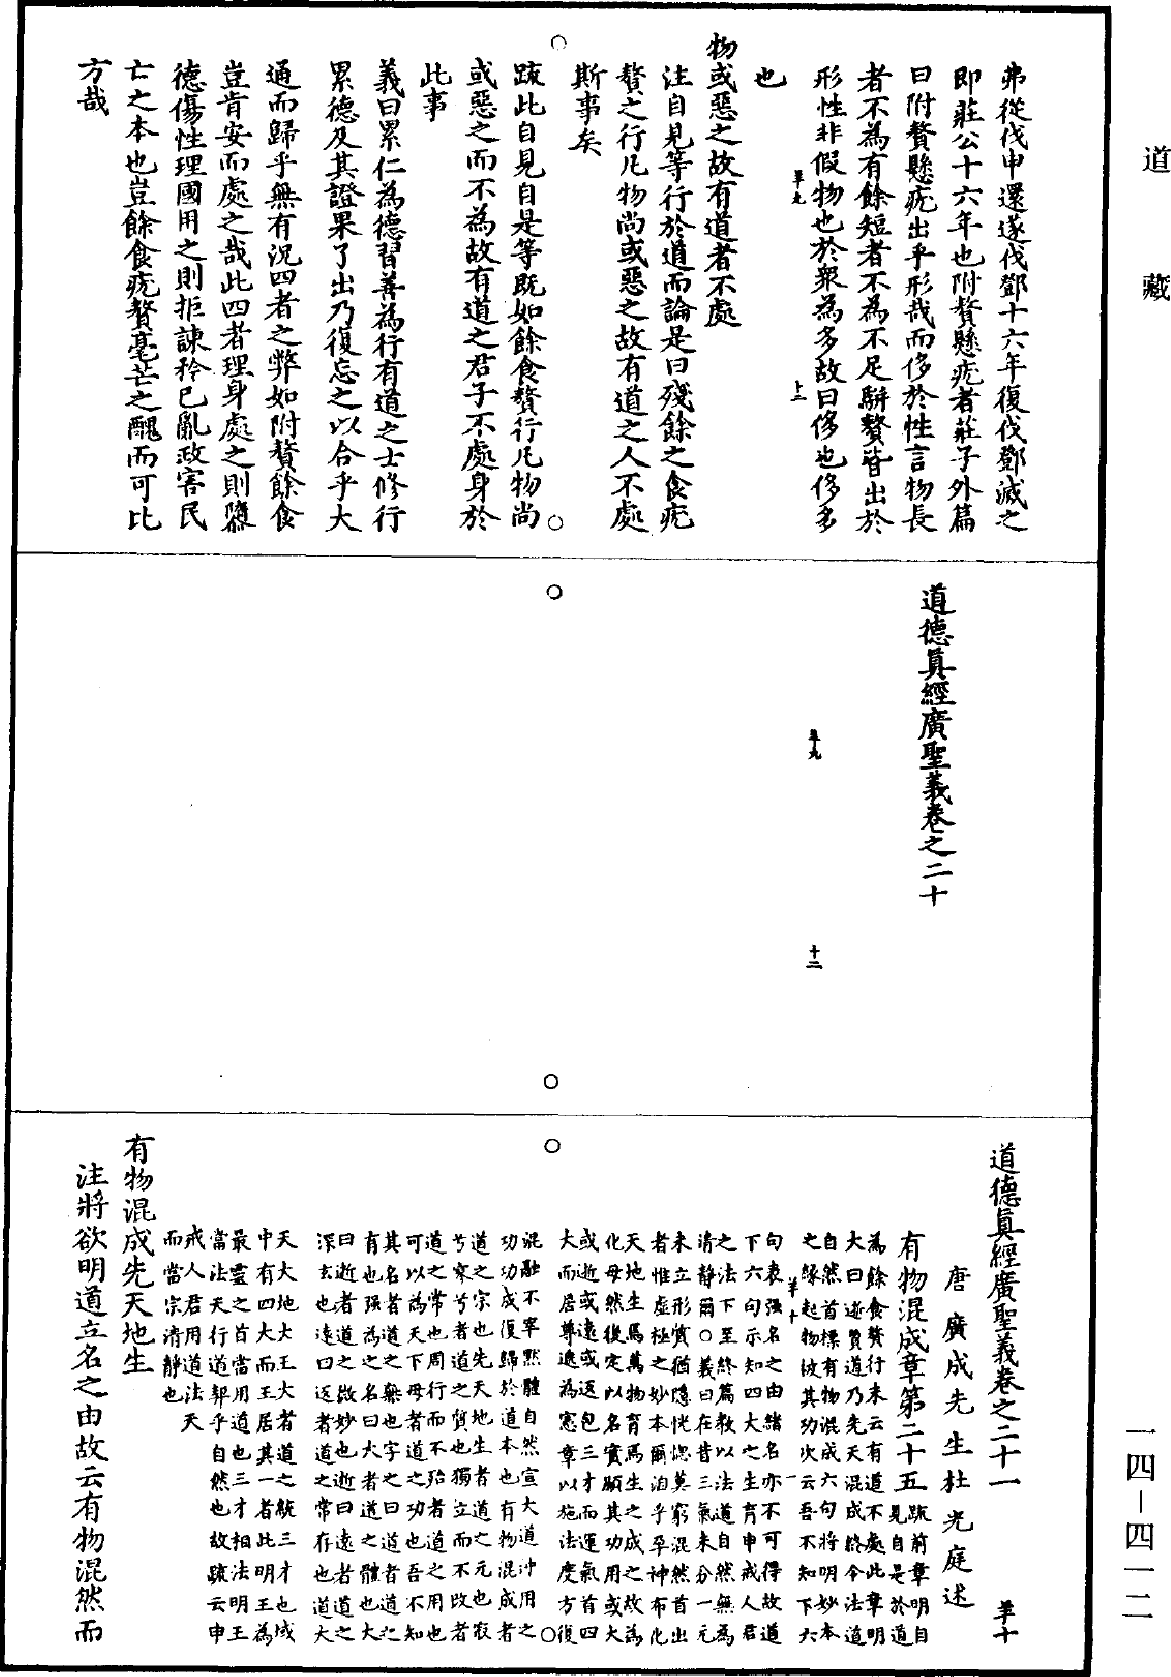 道藏
弗從伐申還遂伐鄧十六年復伐鄧滅之
即莊公十六年也附贅懸疣者莊子外篇
曰附贅懸疣出乎形哉而侈於性言物長
者不為有餘短者不為不足駢贅皆出於
形性非假物也於衆為多故曰侈也侈多
也
物或惡之故有道者不處
注自見等行於道而論是曰殘餘之食疣
贅之行凡物尚或惡之故有道之人不處
斯事矣
疏此自見自是等既如餘食贅行凡物尚
或惡之而不為故有道之君子不處身於
此事
義曰累仁為德習善為行有道之士修行
累德及其證果了出乃復忘之以合乎大
通而歸乎無有況四者之弊如附贅餘食
豈肯安而處之哉此四者理身處之則隳
德傷性理國用之則拒諫矜已亂政害民
亡之本也豈餘食疣贅毫芒之醜而可比
方哉
道德眞經廣聖義卷之二十
十二
道德眞經廣聖義卷之二十一
唐廣成先生杜光庭述
有物混成章第二十五
疏前章明自
見自是於道
為餘食贅行末云有道不處此章明
大曰逝贊道乃先天混成終令法道
自然首標有物混成六句將明妙本
之緣起物彼其功次云吾不知下六
句表强名之由緒名亦不可得故道
下六句示知四大之生育申戒人君
之法下至終篇教以法道自然無為
清静爾○義曰在昔三氣未分一元
未立形質猶隱恍惚莫窮混然首出
者惟虛極之妙本爾洎乎孕神布化
天地生焉萬物育焉生之成之故為
化母然後定以名實顯其功用或大
或逝或遠或返包三才而運氣首四
大而居尊邈為憲章以施法度方復
混融不宰默體自然宣大道沖用之
功功成復歸於道本也有物混成者
道之宗也先天地生者道之元也寂
兮寥兮者道之質也獨立而不改者
道之常也周行而不殆者道之用也
可以為天下母者道之功也吾不知
其名者道之無也字之曰道者道之
有也强為之名曰大者道之體也大
曰逝者道之微妙也逝曰遠者道之
深玄也遠曰返者道之常存也道大
天大地大王大者道之統三才也域
中有四大而王居其一者此明王為
最靈之首當用道也三才相法明王
當法天行道契乎自然也故疏云申
戒人君用道法天
而當宗清靜也
有物混成先天地生
注將欲明道立名之由故云有物混然而
一四—四一二